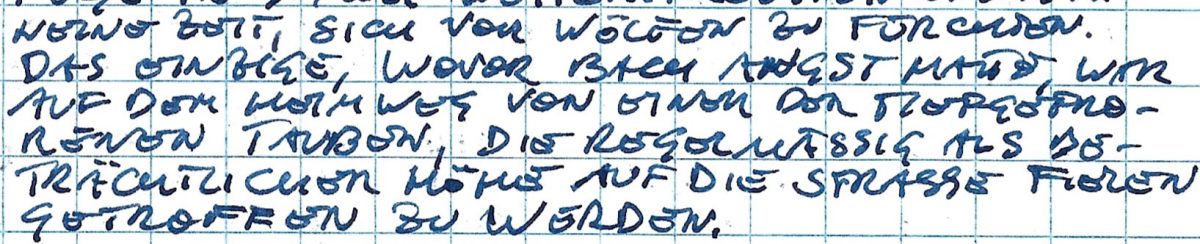 KEINE ZEIT, SICH VOR WÖLFEN ZU FÜRCHTEN.
DAS EINZIGE, WOVOR BACH ANGST HATTE, WAR
AUF DEM HEIMWEG VON EINER DER TIEFGEFRO-
RENEN TAUBEN, DIE REGELMÄSSIG AUS BE-
TRÄCHTLICHER HÖHE AUF DIE STRASSE FIELEN
GETROFFEN ZU WERDEN.